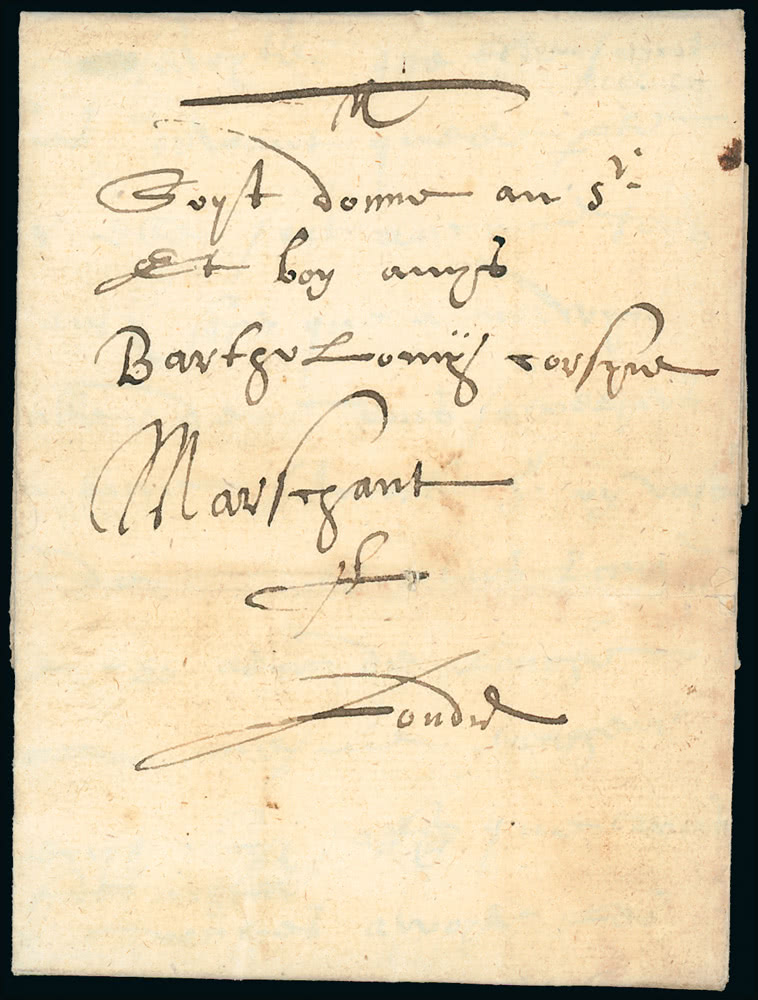 Soyt donne au Sr.
Et bon amys
Bartholomÿ corsyne
Marschant
Londre